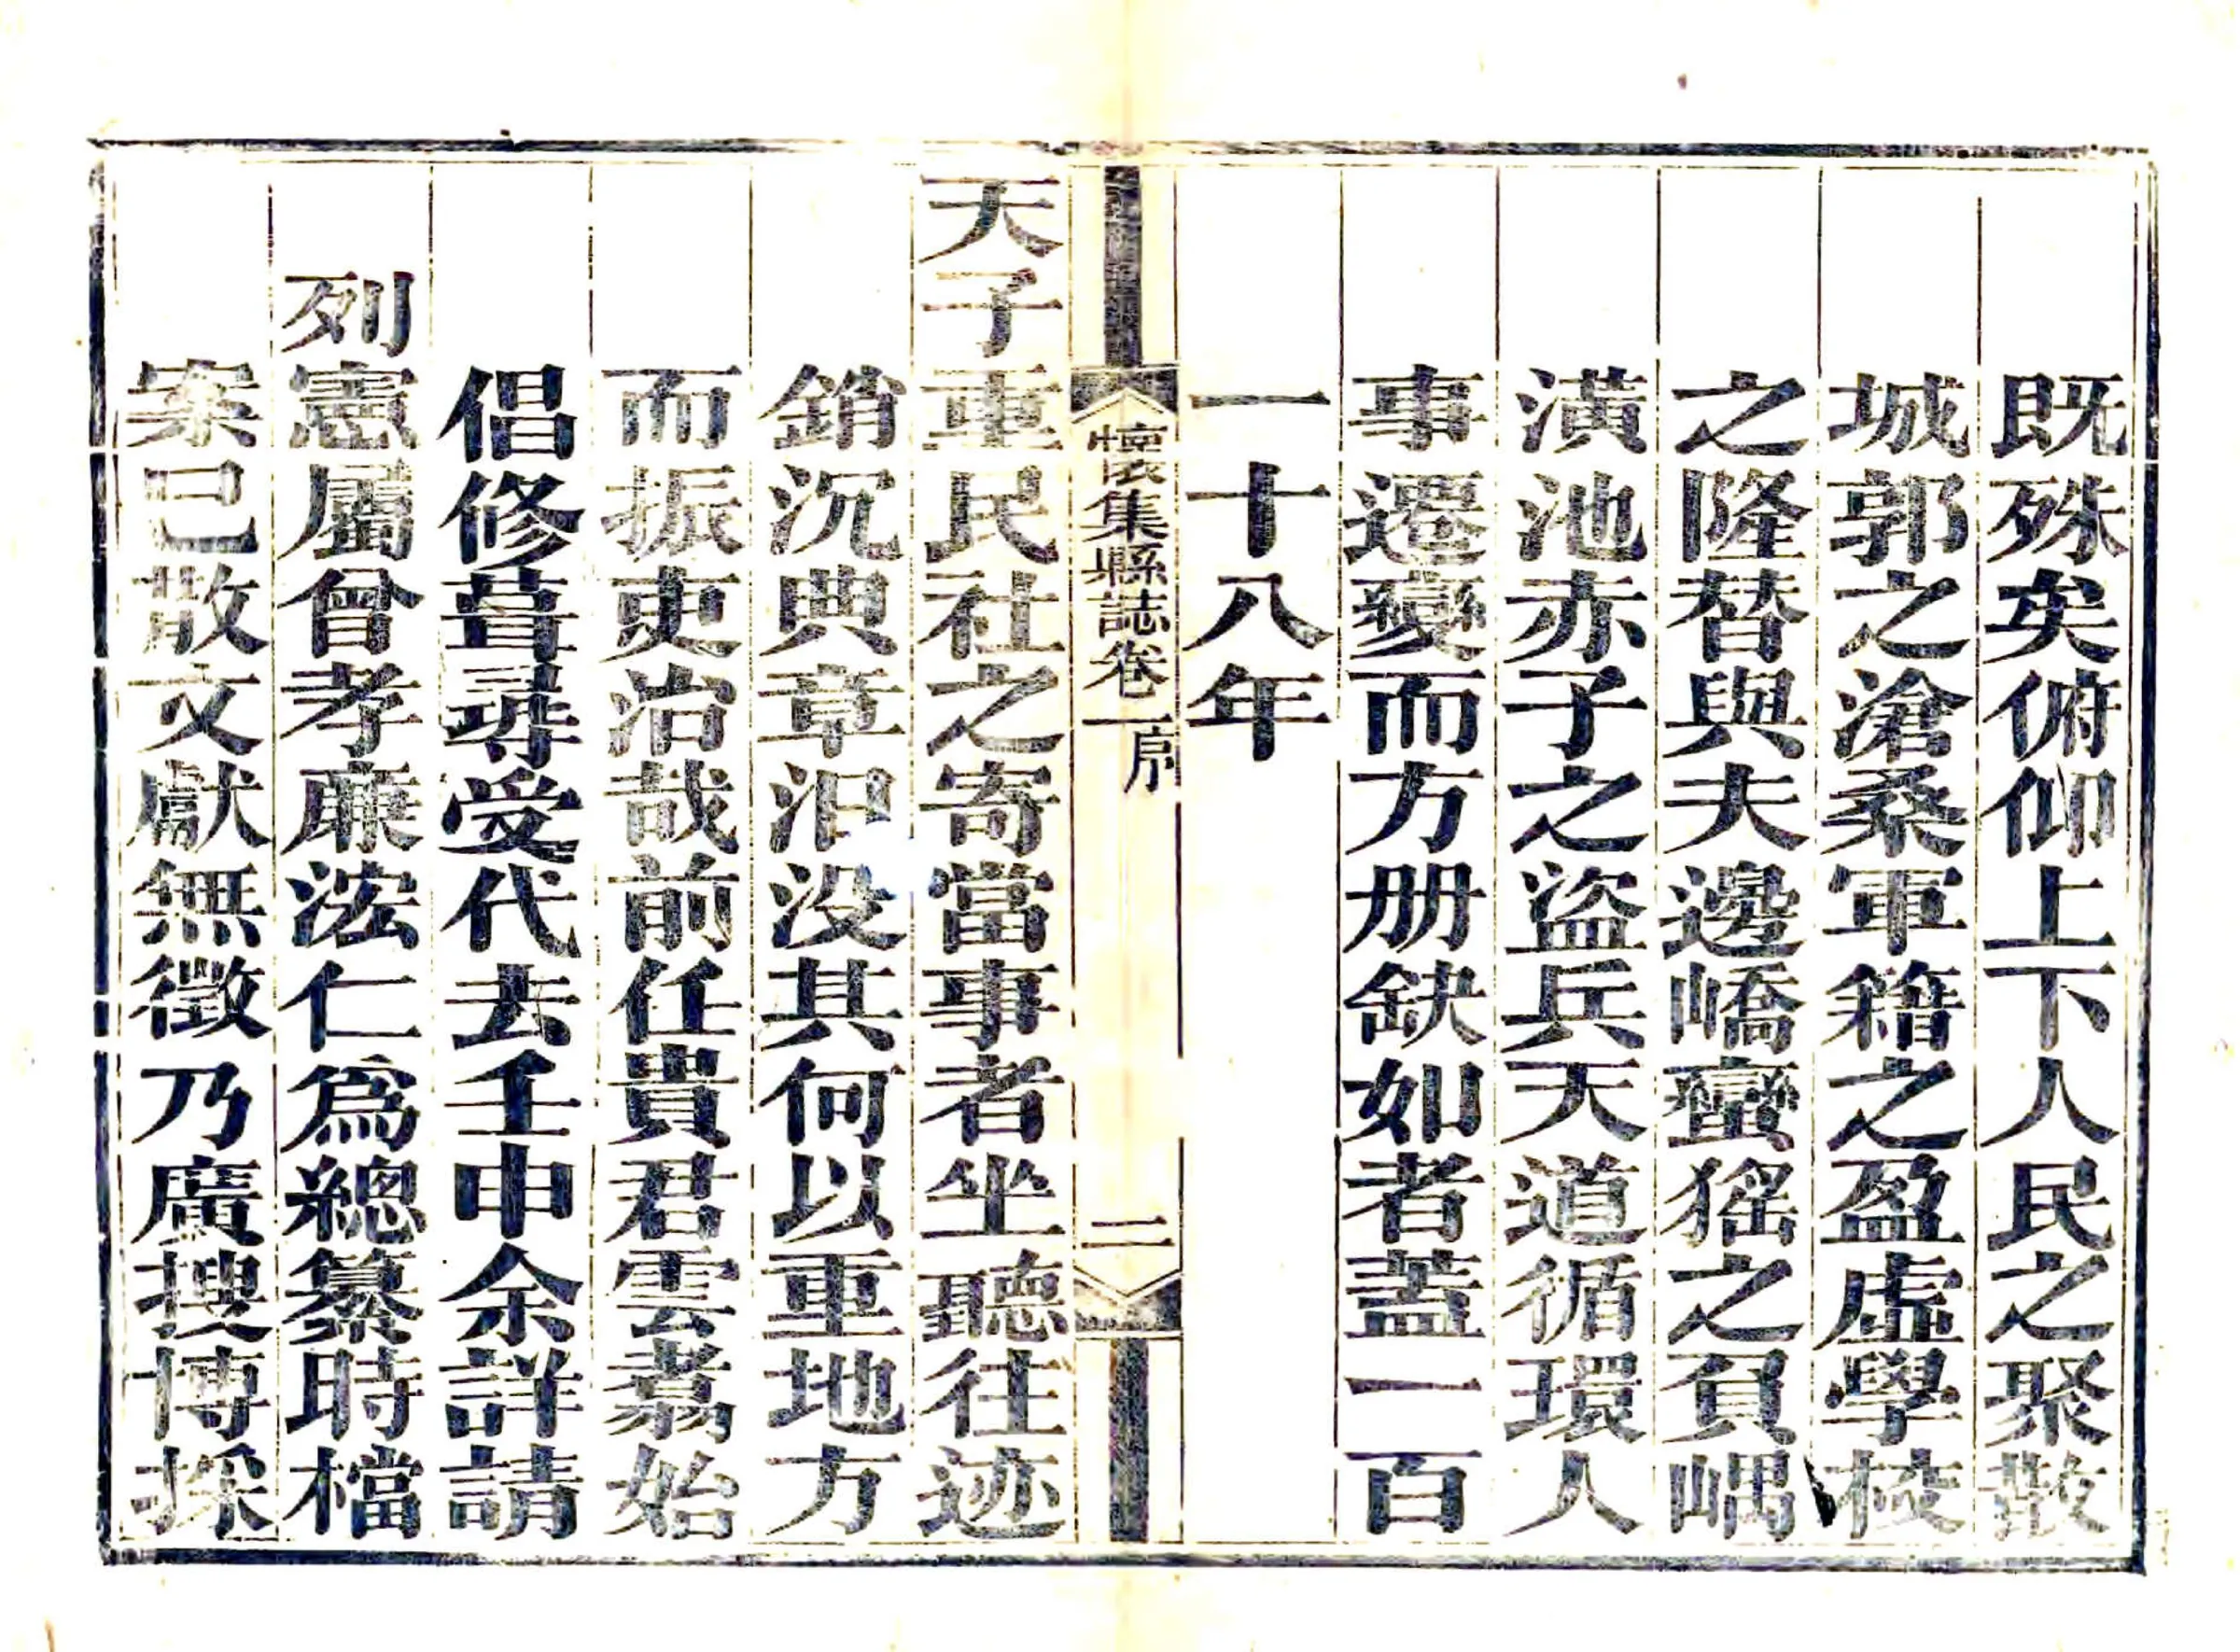 既殊矣俯仰上下人民之聚散
城郭之滄桑軍籍之盈虛學校
之隆替與夫邊嶠蠻猺之負嵎
潢池赤子之盜兵天道循環人
事遷變而方册缺如者蓋一百
一十八年
懷集縣誌卷一序
二
天子重民社之寄當事者坐聽往迹
銷沉典章汩没其何以重地方
而振吏治哉前任貴君雲翥始
倡修葺尋受代去壬申余詳請
列憲屬曾孝廉浤仁爲總纂時檔
案已散文獻無徵乃廣搜博採